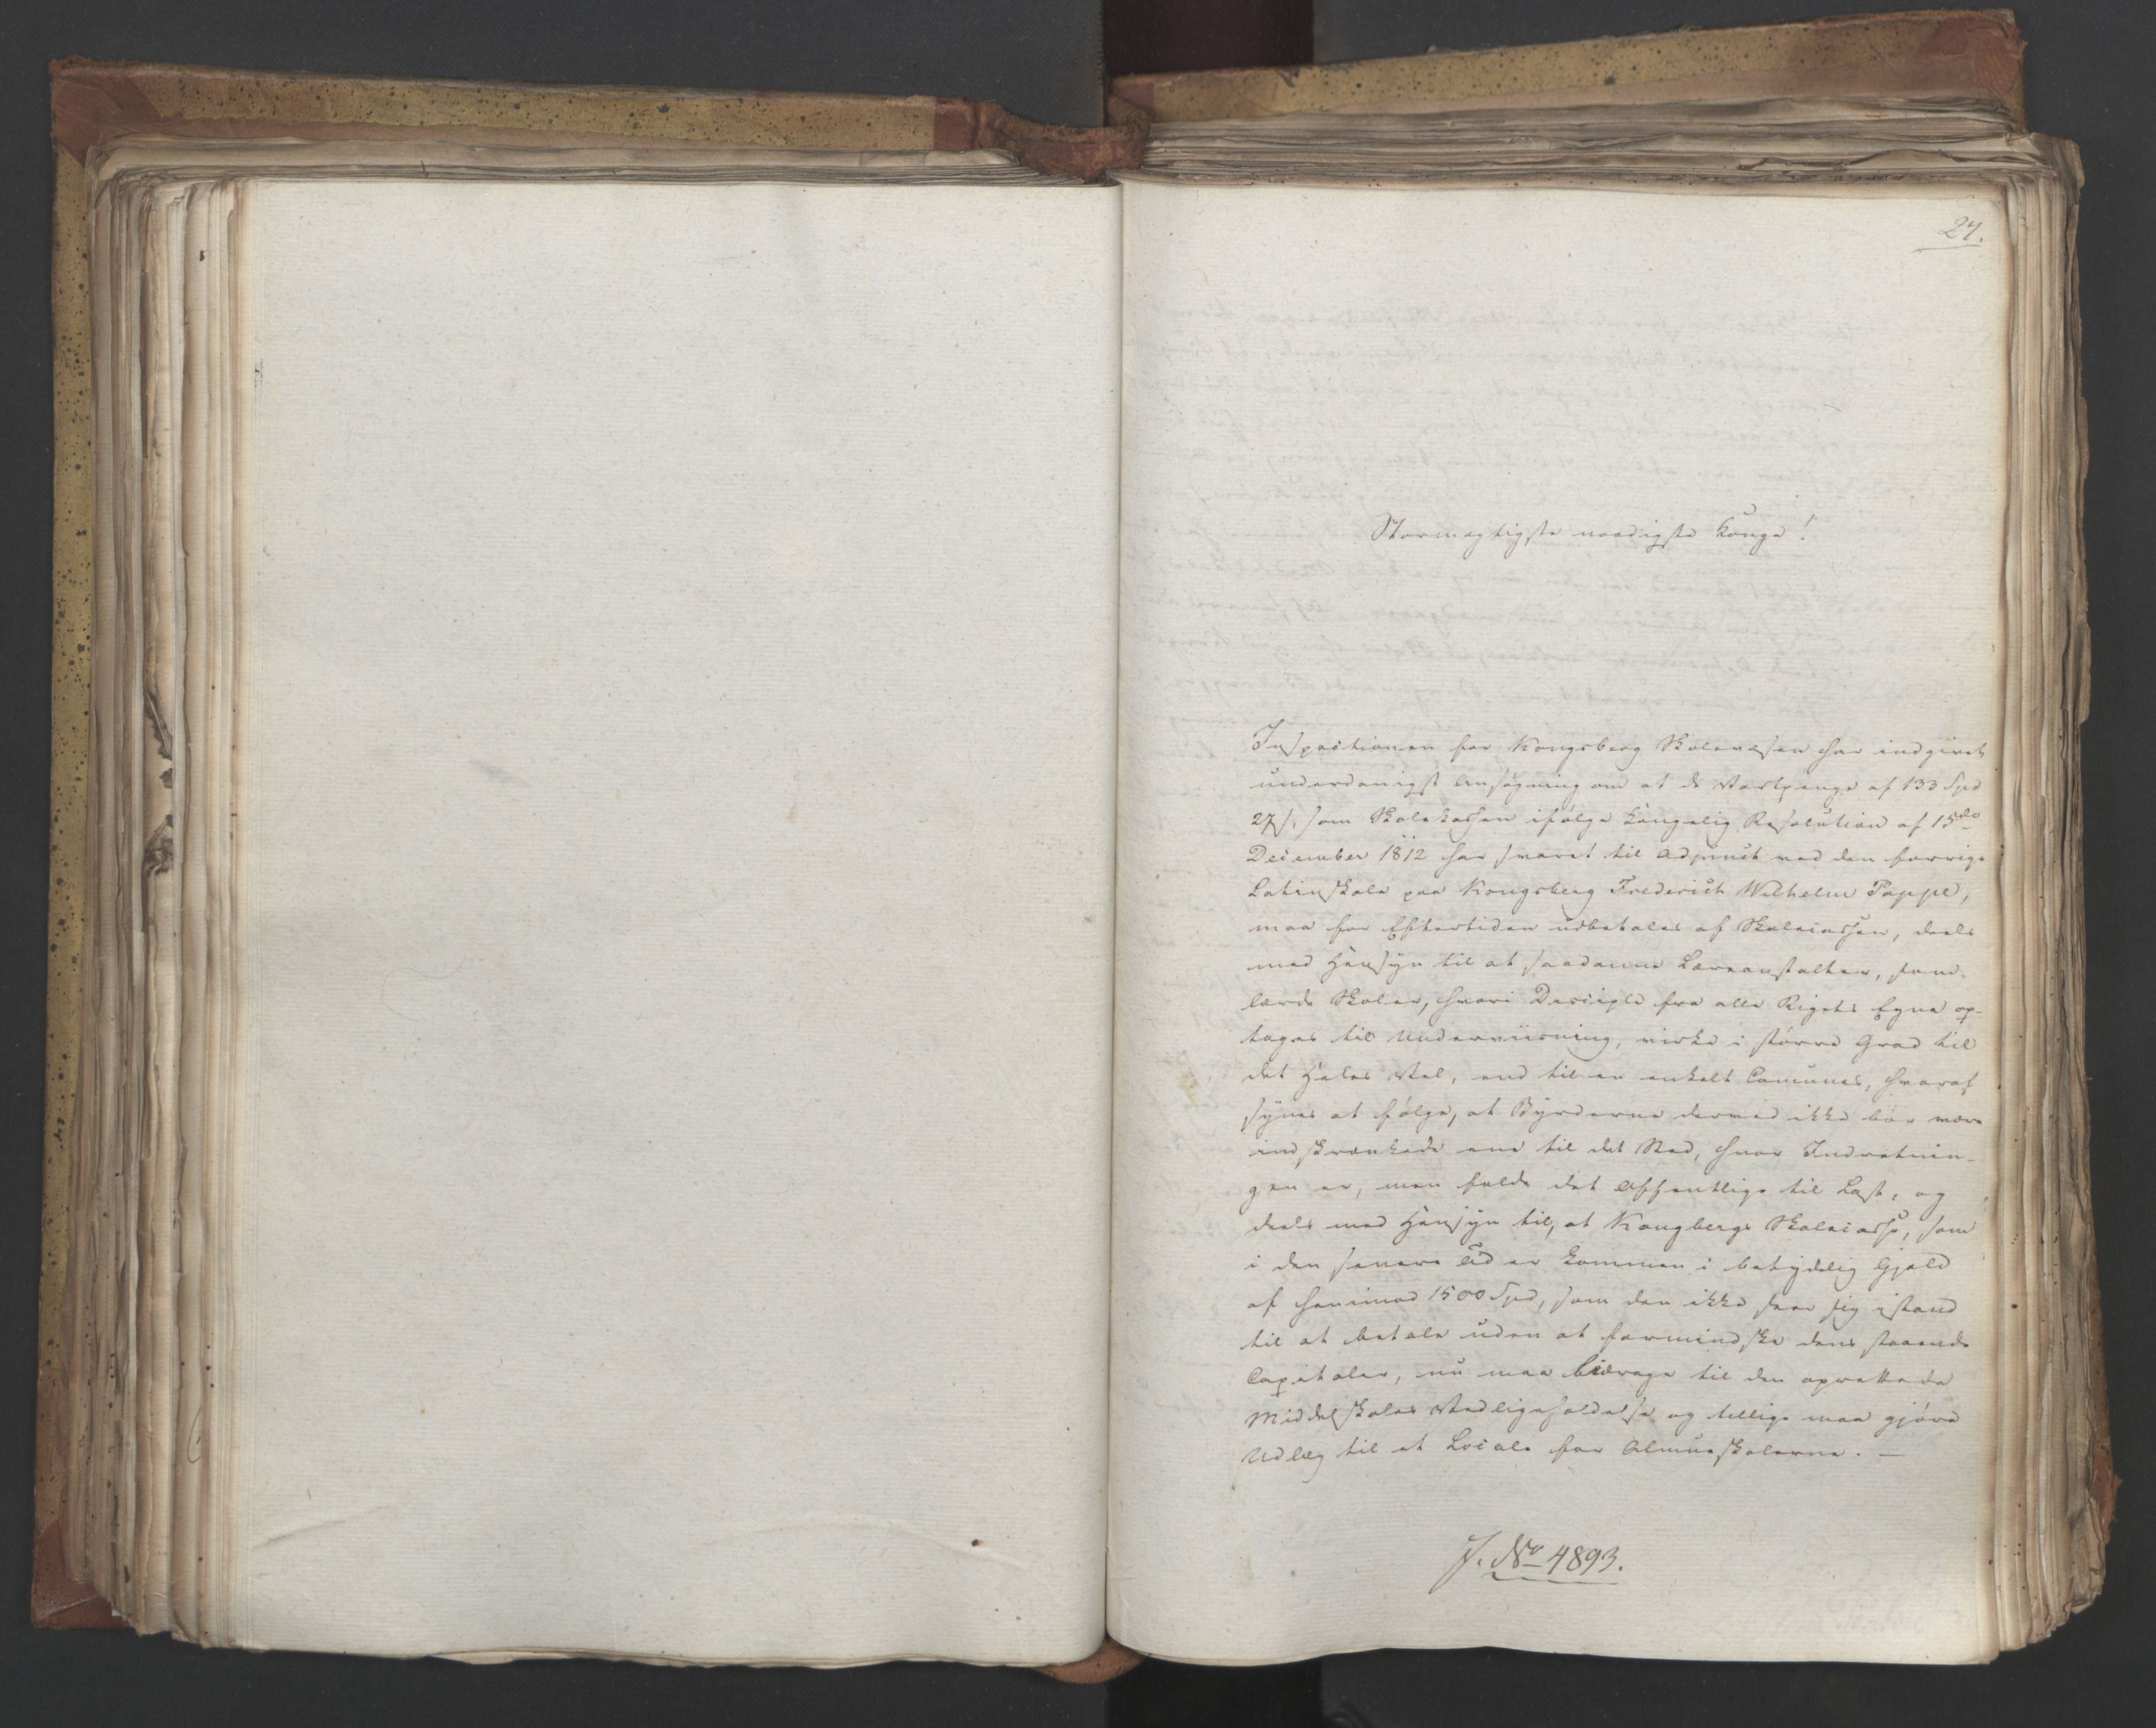 27.
Stormægtigste naadigste Konge!
Inspectionen for Kongsberg Skolevæsen har indgivet
underdanigst Ansøgning om at de Vartpenge af 133 Spd
27 s, som Skolekassen ifølge kongelig Resolution af 15de
December 1812 har svaret til Adjunct ved den forrige
Latinskole paa Kongsberg Frederich Wilhelm Poppe,
maa for Eftertiden udbetales af Statscassen, deels
med Hensyn til at saadanne Læreanstalter, som
lærde Skoler, hvori Disciple fra alle Rigets Egne op-
tages til Underviisning, virke i større Grad til
det Heles Vel, end til en enkelt Comunes, hvoraf
synes at følge, at Byrderne derved ikke bør være
indskrænkede ene til det Sted, hvor Indretnin-
gen er, men falde det Offentlige til Last, og
deels med Hensyn til, at Kongbergs Skolecasse, som
i den senere Tid er kommen i betydelig Gjeld
af henimod 1500 Spd, som den ikke seer sig istand
til at betale uden at formindske dens staaende
Capitaler, nu maa bidrage til den oprettede
Middelskoles Vedligeholdelse og tillige maa gjøre
Udlæg til et Locale for Almueskolerne. —
J. No 4893.